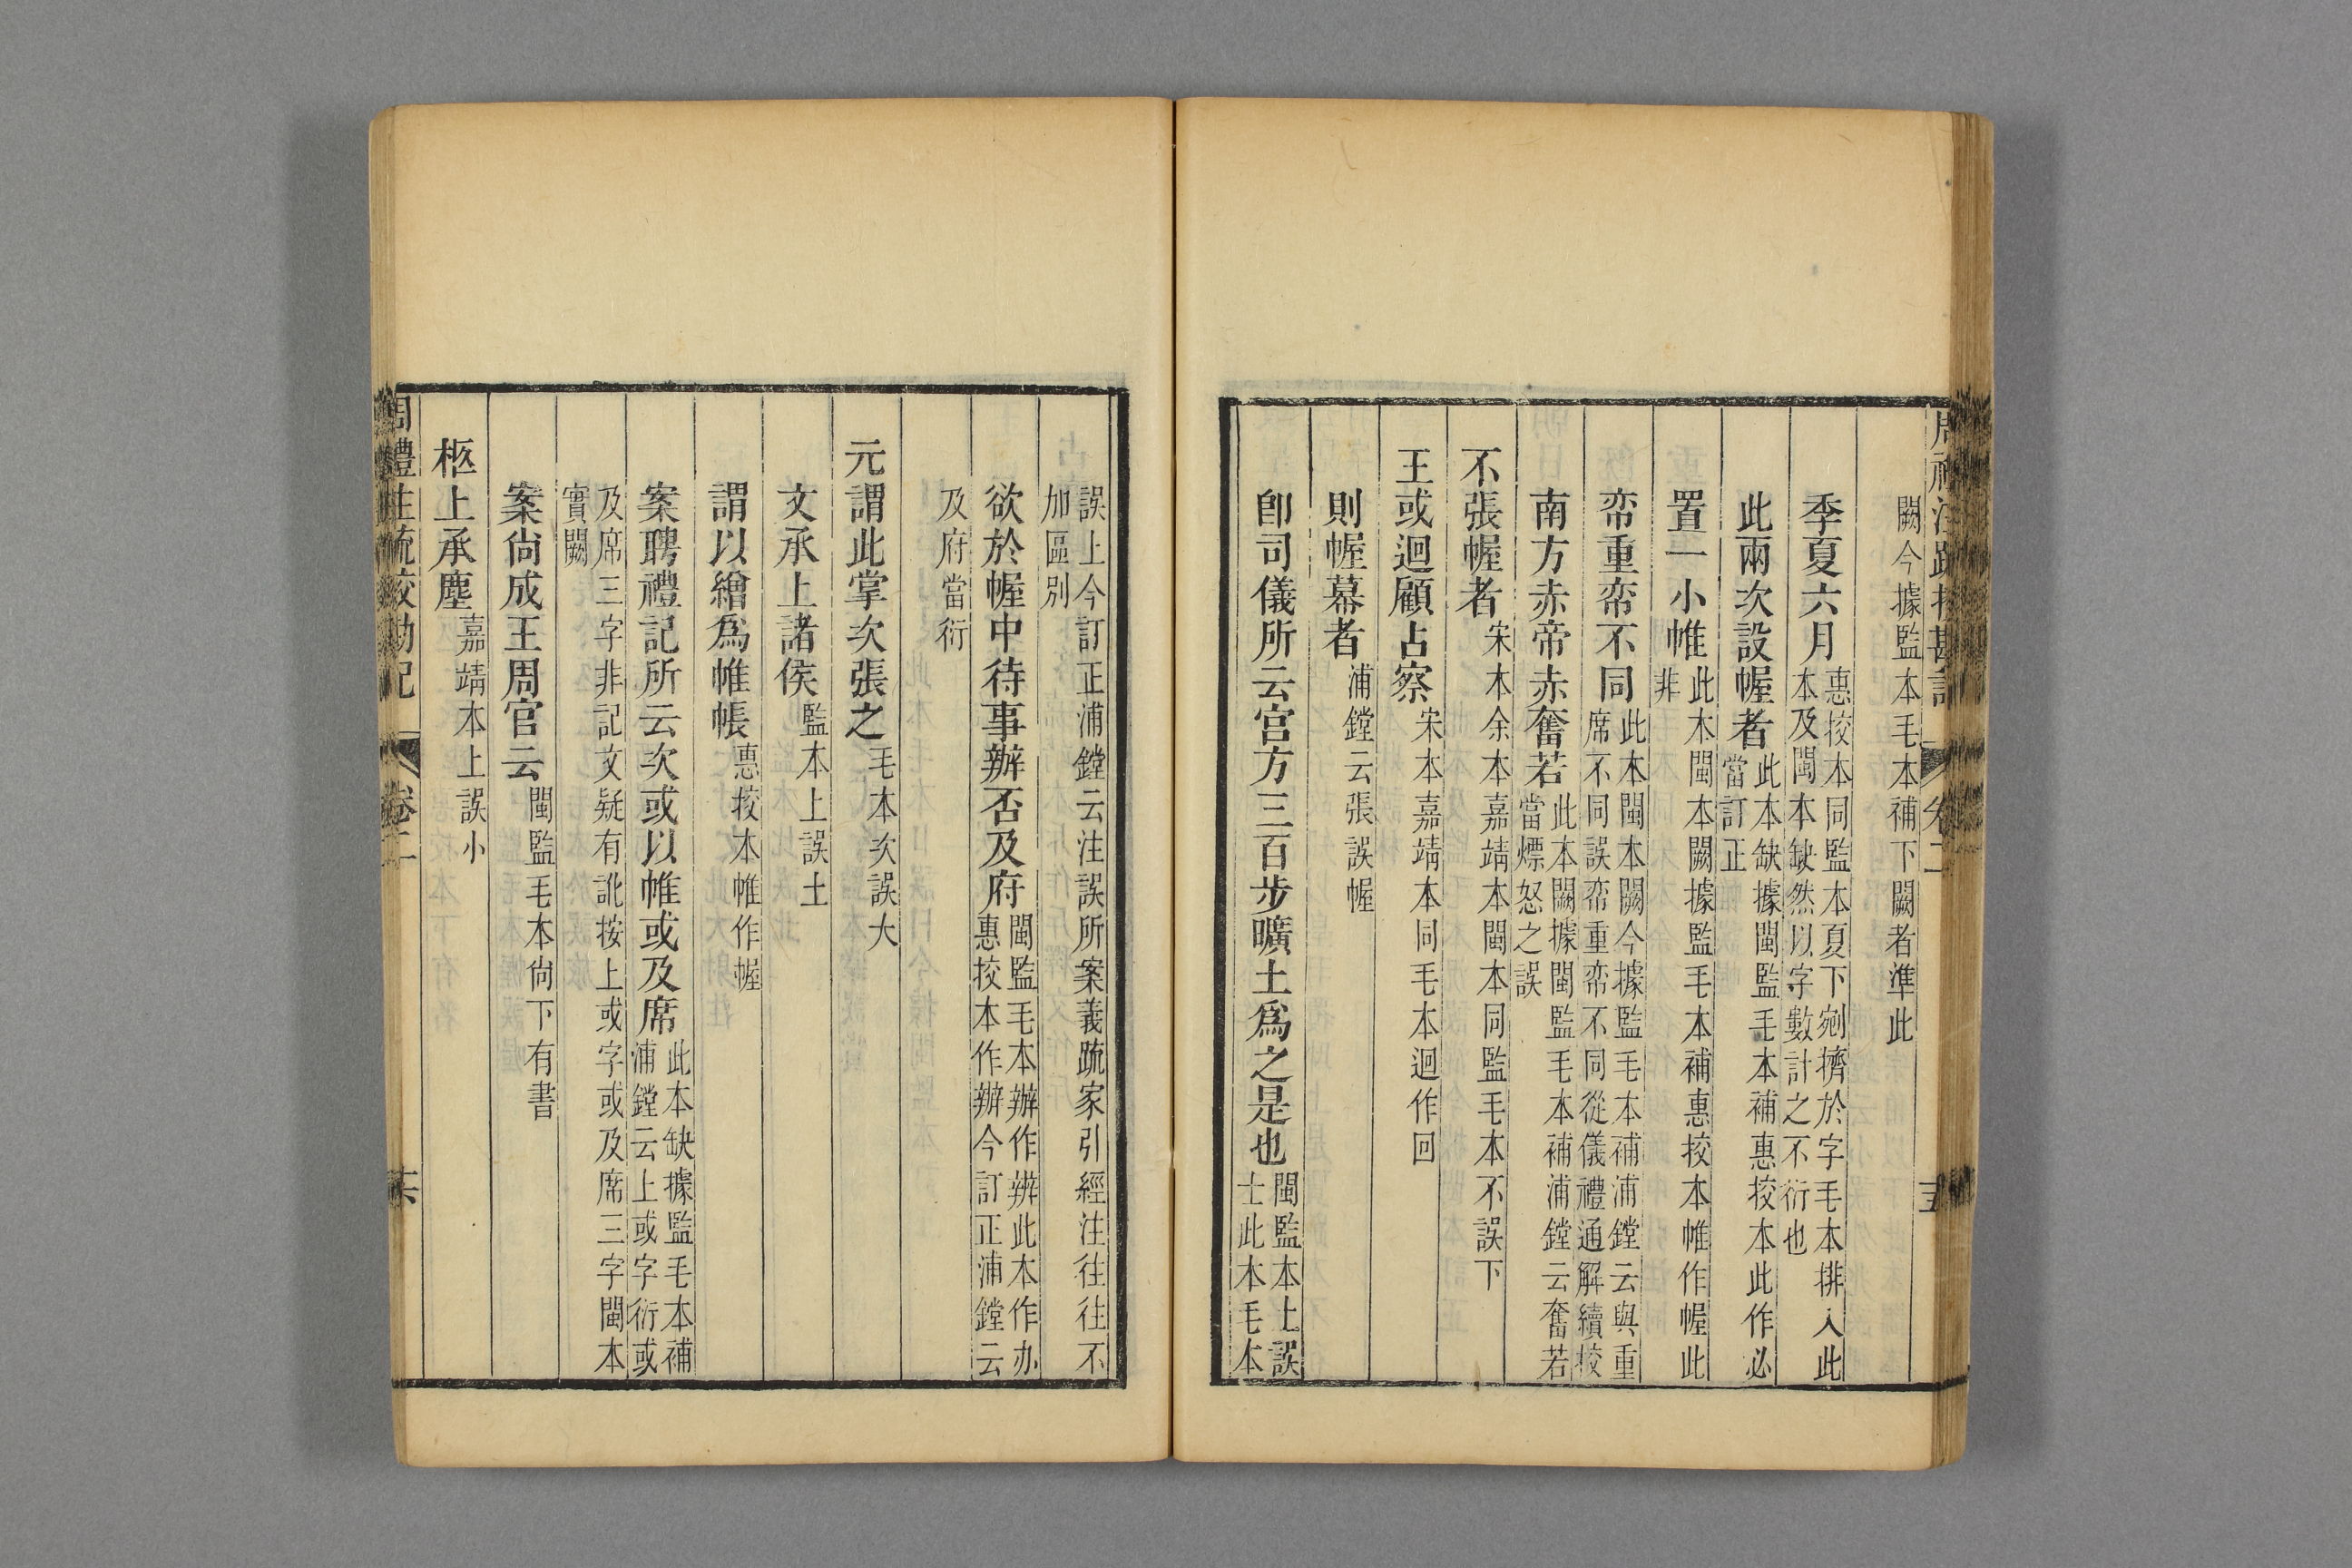 周禮注疏挍勘記 卷二
闕今據監本毛本補下闕者準此
季夏六月惠挍本同監本夏下剜擠於字毛本排入此本及閩本缺然以字數計之不衍也
此兩次設幄者此本缺據閩監毛本補惠挍本此作必當訂正
置一小帷此本閩本闕據監毛本補惠挍本帷作幄此非
帟重帟不同此本閩本闕今據監毛本補浦鏜云與重席不同誤帟重帟不同從儀禮通解續挍
南方赤帝赤奮若此本闕據閩監毛本補浦鏜云奮若當熛怒之誤
不張幄者宋本余本嘉靖本閩本同監毛本不誤下
王或迴顧占察宋本嘉靖本同毛本迴作回
則幄幕者浦鏜云張誤幄
卽司儀所云宮方三百步曠土爲之是也閩監本土誤士此本毛本
誤上今訂正浦鏜云注誤所案義疏家引經注往往不加區別
欲於幄中待事辦否及府閩監毛本辦作辨此本作办惠挍本作辦今訂正浦鏜云
及府當衍
元謂此掌次張之毛本次誤大
文承上諸侯監本上誤土
謂以繒爲帷帳惠挍本帷作幄
案聘禮記所云次或以帷或及席此本缺據監毛本補浦鏜云上或字衍或
及席三字非記文疑有訛按上或字或及席三字閩本實闕
案尙成王周官云閩監毛本尙下有書
柩上承塵嘉靖本上誤小
周禮注疏挍勘記 卷二